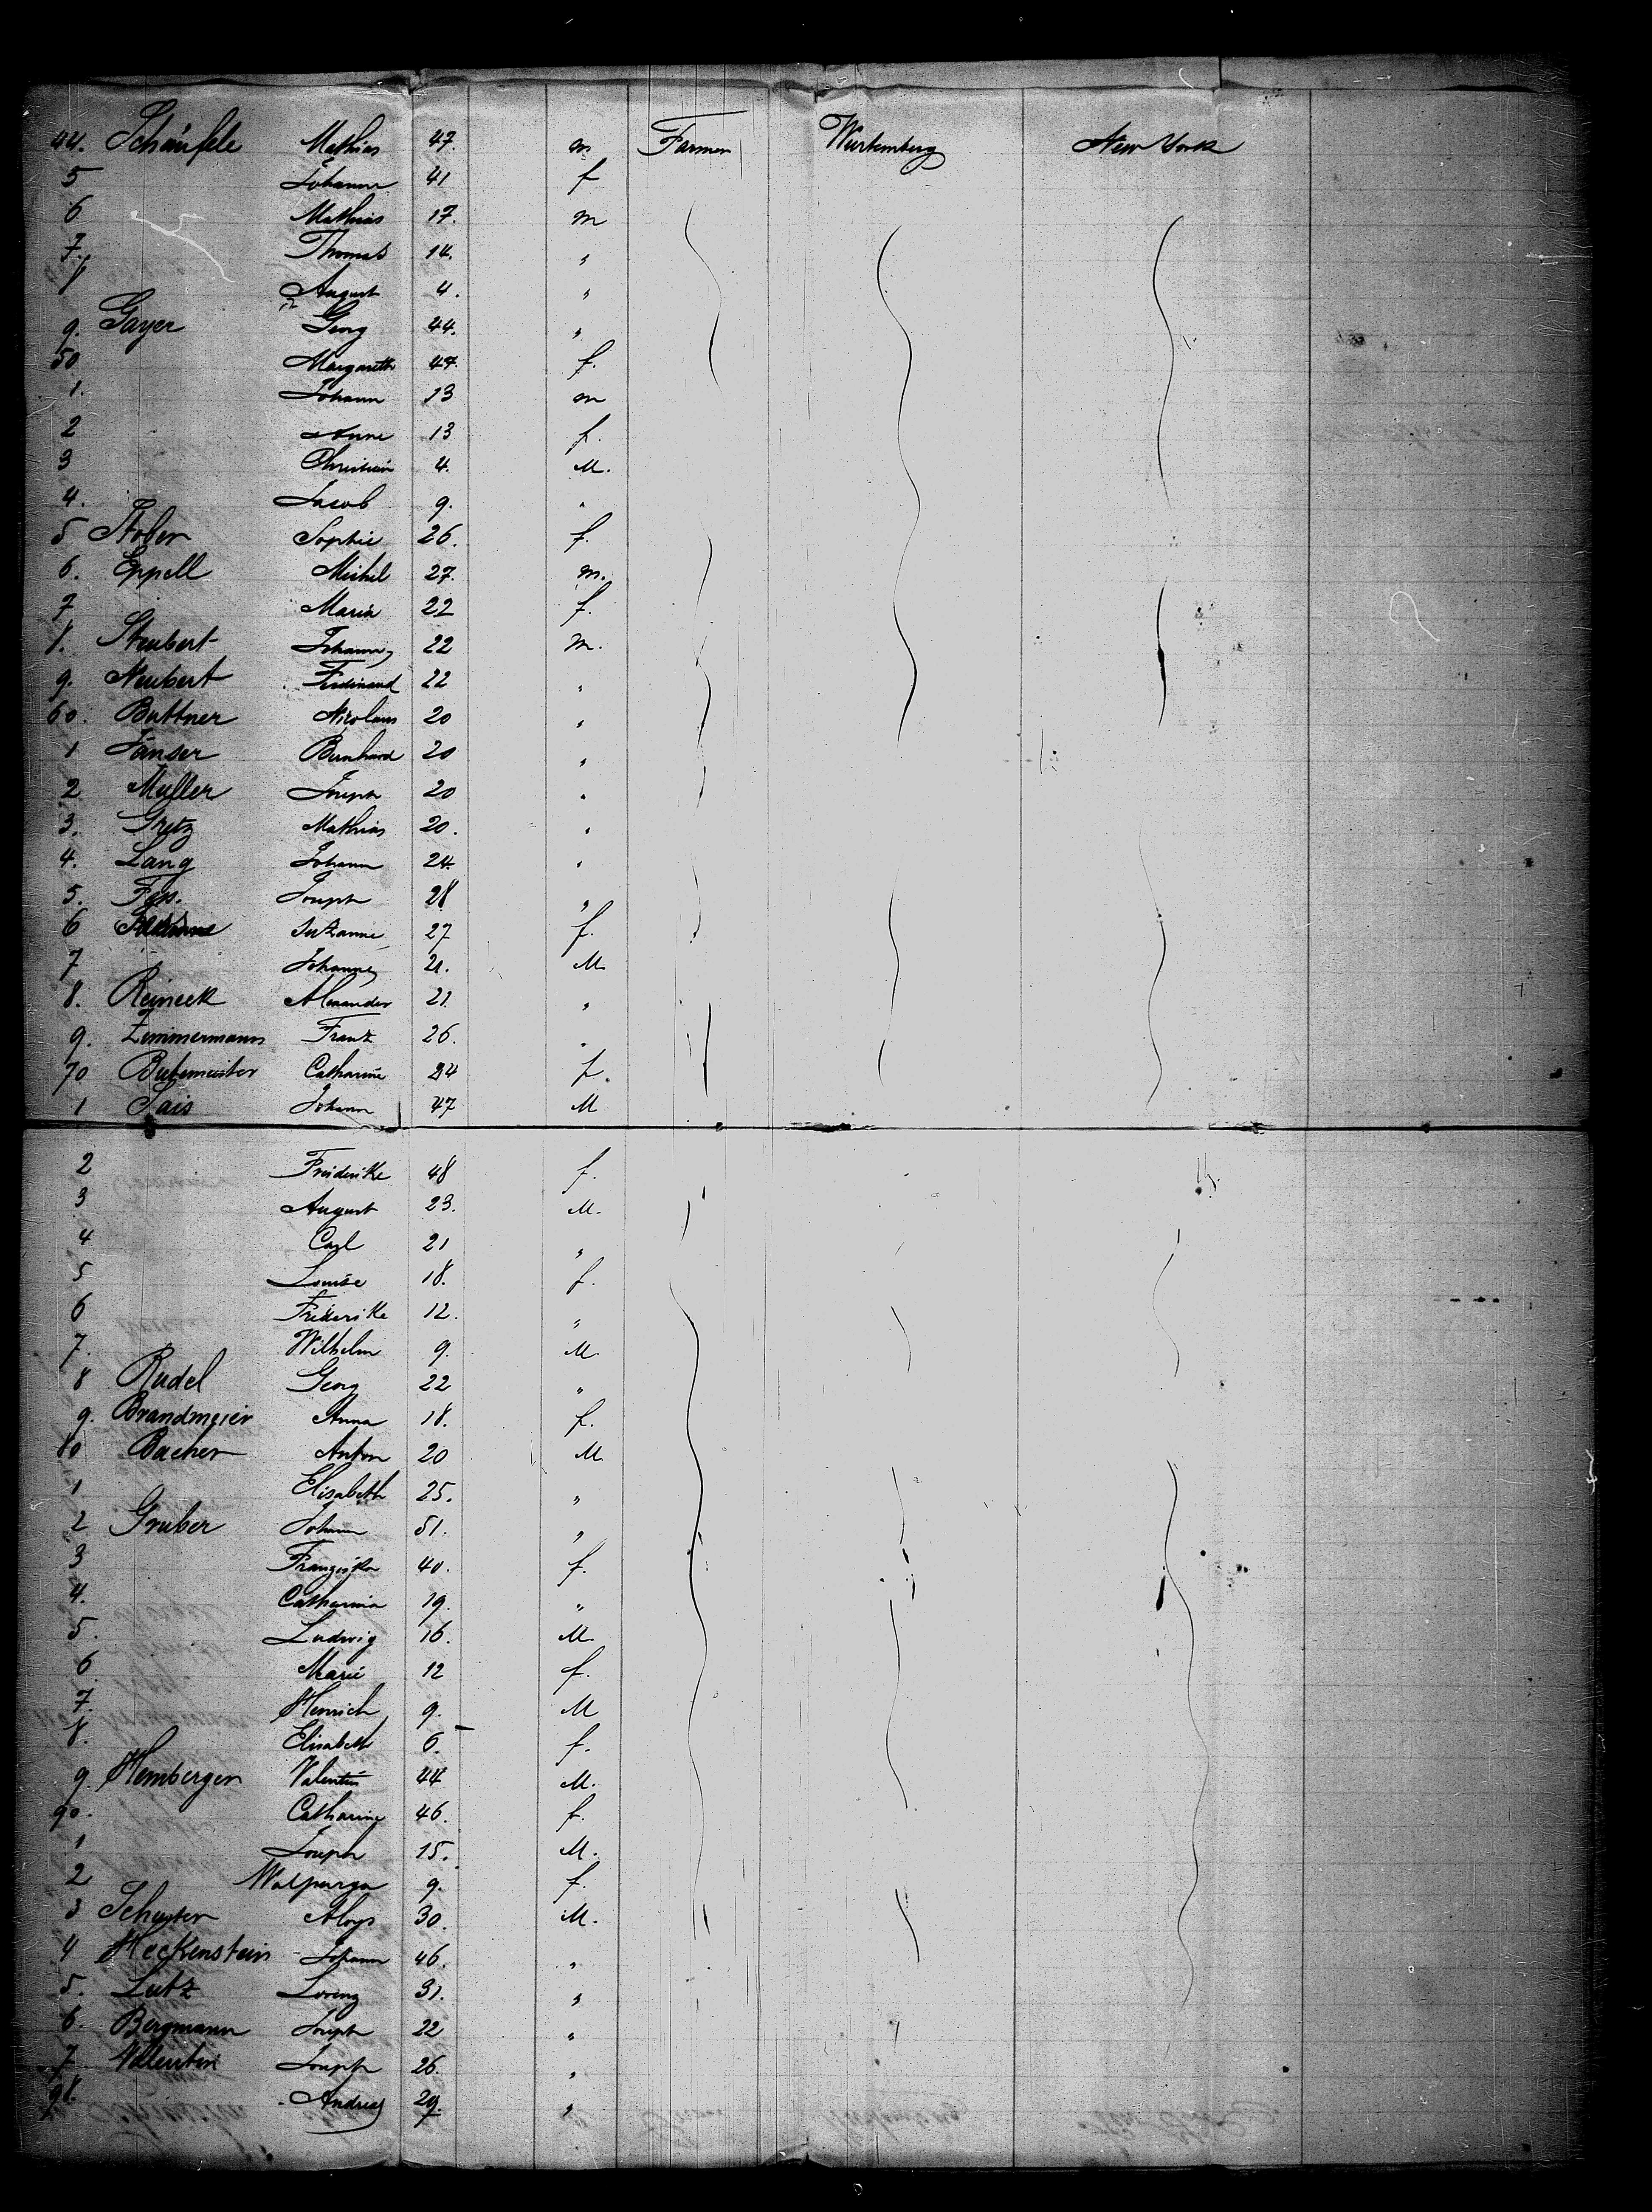 44. Schäufele Mathias 47. m Farmer Würtemberg New York
5 Johanne 41 f
6 Mathias 17. m
7. Thomas 14. "
8 August 4. "
9. Gayer Georg 44. "
50 Margareth 47. f.
1. Johann 13 m
2 Anne 13 f.
3 Christian 4. M.
4. Jacob 9. "
5 Stober Sophie 26. f.
6. Eppell Michel 27. m.
7 Maria 22 f.
8. Johann 22 m.
9. Neubert Ferdinand 22 "
60. Buttner Nicolaus 20 "
1 Janser Bernhard 20 "
2 Muller Joseph 20 "
3. Mathias 20. "
4. Lang Johann 24 "
5. Joseph 28 "
6 Suzanne 27 f.
7 21. M
8. Reineck Alexander 21. "
9. Zimmermann Franz 26. "
70 Catharine 24 f.
1 Sais Johann 47 M
2 Friederike 48 f.
3 August 23. M.
4 Carl 21 "
5 Louise 18. f.
6 Friederike 12. "
7. Wilhelm 9. M
8 Rudel Georg 22 "
9. Brandmeier Anna 18. f.
80 Bacher Anton 20 M
1 Elisabeth 25. "
2 Gruber Johann 51. "
3 Franziska 40. f.
4. Catharina 19. "
5. Ludwig 16. M
6 Marie 12 f.
7. Henrich 9. M
8. Elisabeth 6. f.
9 Hemberger Valentin 44 M.
90. Catharine 46. f.
1 Joseph 15. M.
2 Walpurga 9. f.
3 Schuster Aloys 30. M.
4 Heckenstein Johann 46. "
5. Lutz Lorenz 31. "
6. Bergmann Joseph 22 "
7 Valentin Joseph 26. "
98. Andreas 29. "